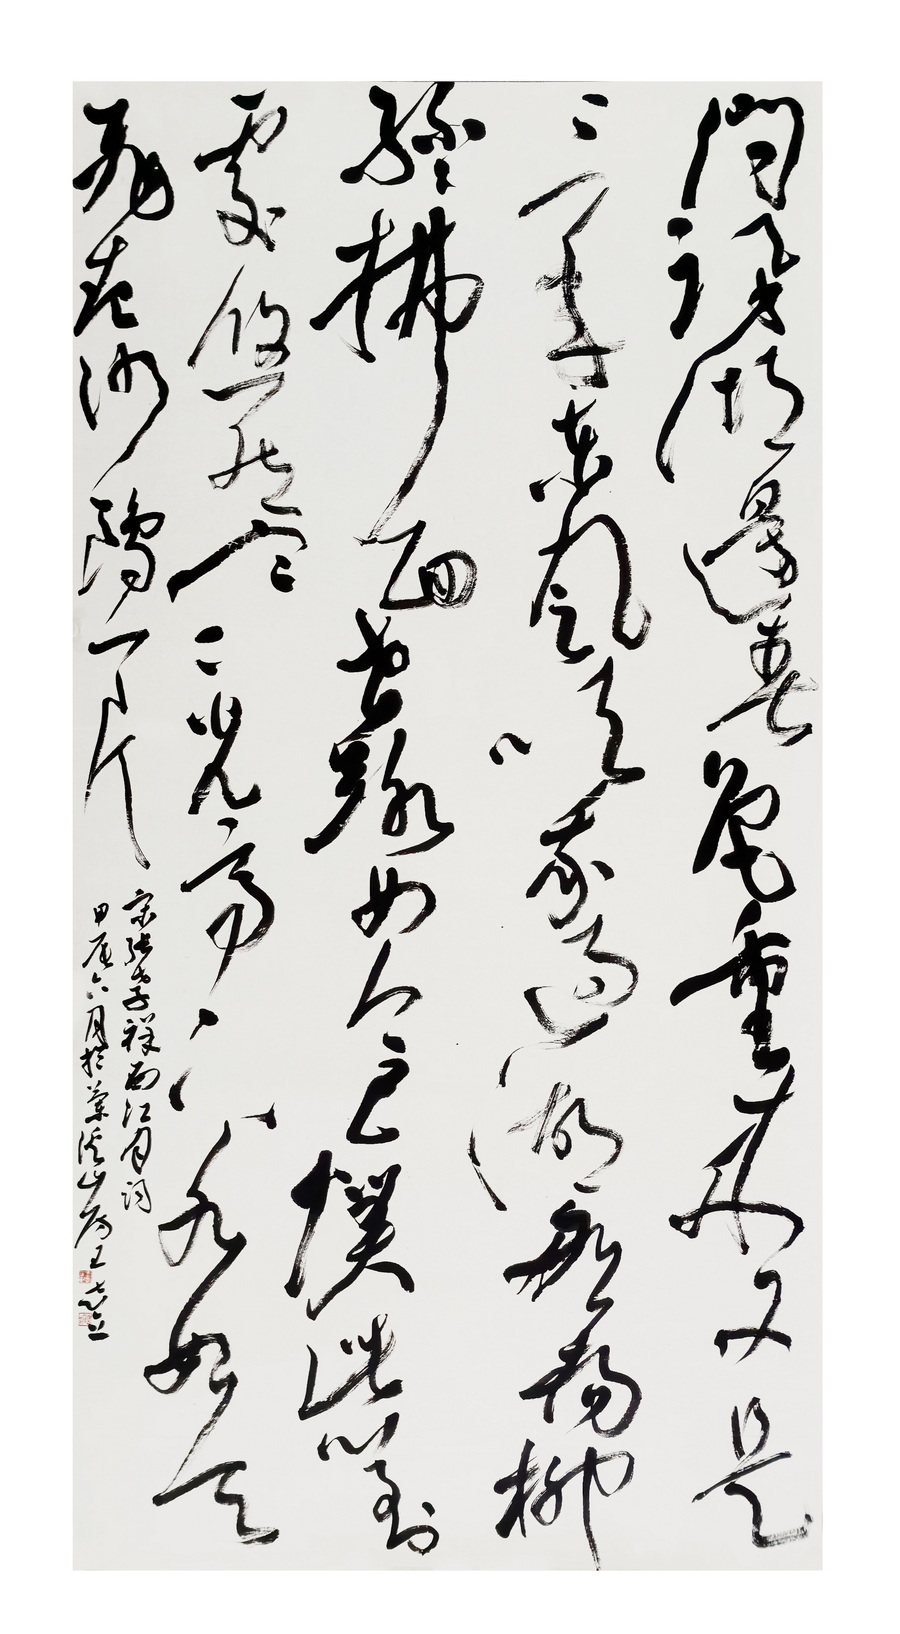 問訊湖邊春色重来又是
三年東風吹我過湖船楊柳
絲〻拂面世路如今已慣此心到
處悠然寒光亭下水如天
飛起沙鷗一片
宋張孝祥西江月詞
甲辰六月於蘭溪山房王志立